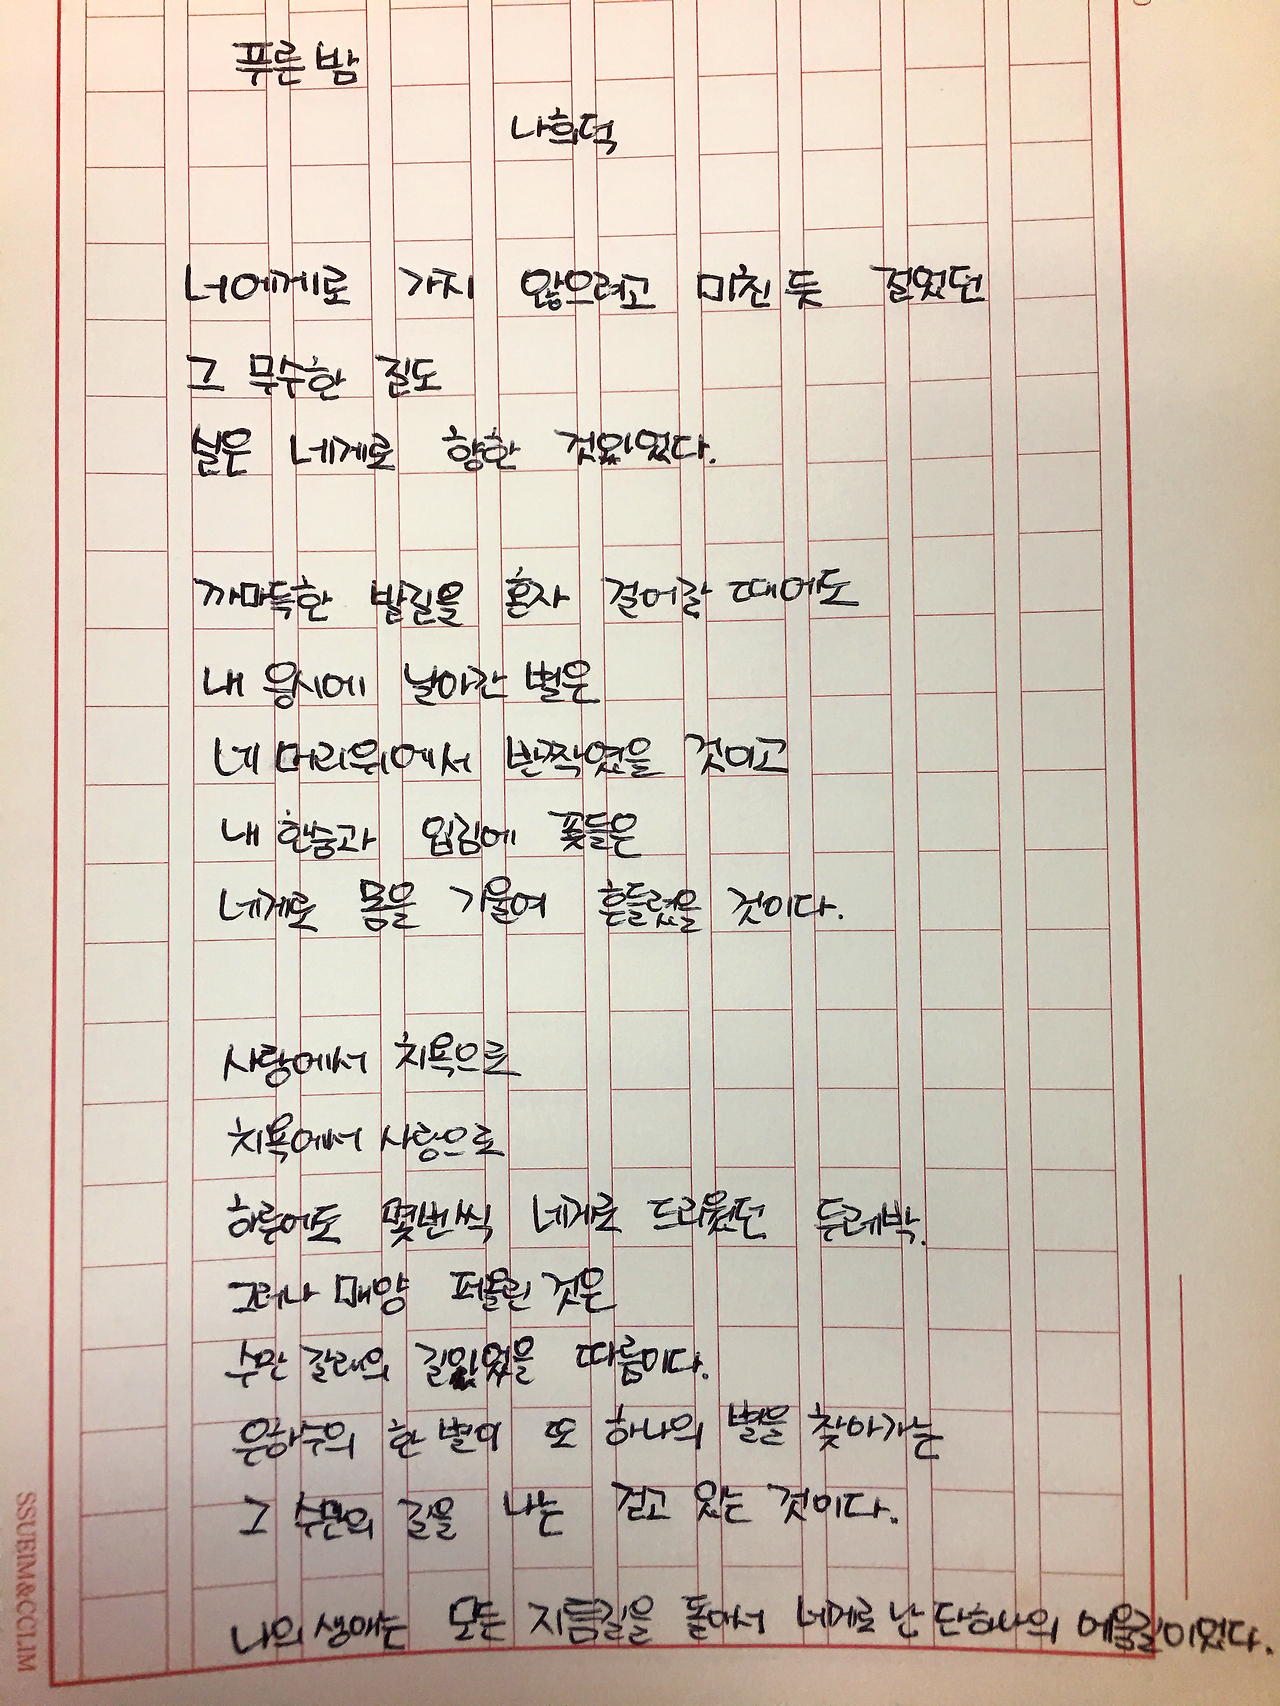 푸른 밤
나희덕
너에게로 가지 않으려고 미친 듯 걸었던
그 무수한 길도
실은 네게로 향한 것이었다.
까마득한 밤길을 혼자 걸어갈 때에도
내 응시에 날아간 별은
네 머리위에서 반짝였을 것이고
내 한숨과 입김에 꽃들은
네게로 몸을 기울여 흔들렸을 것이다.
사랑에서 치욕으로
치욕에서 사랑으로
하루에도 몇번씩 네게로 드리웠던 두레박.
그러나 매양 퍼올린 것은
수만 갈래의 길이었을 따름이다.
은하수의 한 별이 또 하나의 별을 찾아가는
그 수만의 길을 나는 걷고 있는 것이다.
나의 생애는 모든 지름길을 돌아서 네게로 난 단하나의 에움길이었다.
SSUEIM&CCLIM